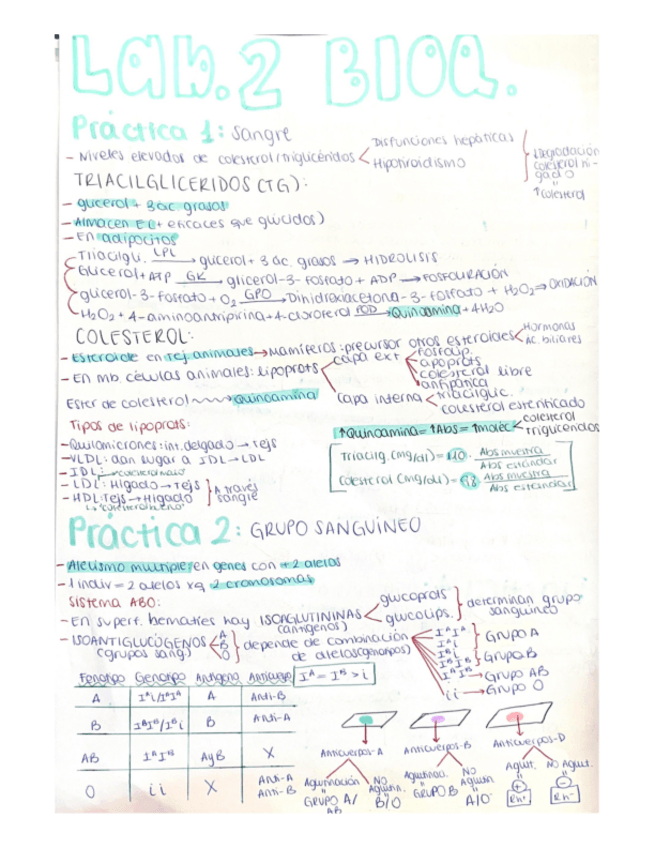 LAB.2 BIOQ.
Práctica 1: Sangre
- Niveles elevados de colesterol/triglicéridos < Disfunciones hepáticas
Hipotiroidismo
↓Degradación
colesterol hí-
gado
"
↑colesterol
TRIACILGLICERIDOS (TG):
- glicerol + 3 ac. grasos
- Almacen E (+ eficaces que glúcidos)
- En adipocitos
Triacilgli. LPL→ glicerol + 3 ác. grasos → HIDRÓLISIS
Glicerol + ATP GK→ glicerol-3-fosfato + ADP → FOSFORILACIÓN
glicerol-3-fosfato + O2 GPO→ Dihidroxiacetona-3-fosfato + H2O2 → OXIDACIÓN
H2O2 + 4-aminoantipirina + 4-clorofenol POD→ Quinoamina + 4H2O
COLESTEROL:
- Esteroide en tej animales → Mamíferos: precursor otros esteroides < Hormonas
Ác. biliares
- En mb. células animales: lipoprots < capa ext < fosfolip.
apoprots
colesterol libre
anfipática
capa interna < triacilglic.
colesterol esterificado
Ester de colesterol → Quinoamina
Tipos de lipoprots:
↑Quinoamina = ↑Abs = ↑moléc < colesterol
triglicéridos
- Quilomicrones: int. delgado → tejs
- VLDL: dan lugar a IDL → LDL
- IDL:
"colesterol malo"
- LDL: Hígado → Tejs
- HDL: Tejs → Hígado } A través
sangre
↳ "colesterol bueno"
Triacilg. (mg/dl) = · Abs muestra
Abs estándar
Colesterol (mg/dl) = · Abs muestra
Abs estándar
Práctica 2: GRUPO SANGUÍNEO
- Alelismo múltiple: en genes con +2 alelos
- 1 indiv = 2 alelos xq 2 cromosomas
SISTEMA ABO:
- En superf. hematíes hay ISOAGLUTININAS < glucoprots
glucolips. } determinan grupo
sanguíneo
(antígenos)
- ISOANTIGLUCÓGENOS < A
B
O } depende de combinación
de alelos (genotipos)
(grupos sang)
I^A I^A
I^A i } Grupo A
I^B i
I^B I^B } Grupo B
I^A I^B → Grupo AB
i i → Grupo O
Fenotipo Genotipo Antígeno Anticuerpo
I^A = I^B > i
A I^A i / I^A I^A A Anti-B
B I^B I^B / I^B i B Anti-A
AB I^A I^B A y B X
O i i X Anti-A
Anti-B
Anticuerpos-A Anticuerpos-B Anticuerpos-D
Aglutinación
"
GRUPO A/
AB
NO
Aglutin.
"
B/O
Aglutinac.
"
GRUPO B
NO
Aglutin
"
A/O
Aglut.
"
+
Rh+
NO Aglut.
"
-
Rh-